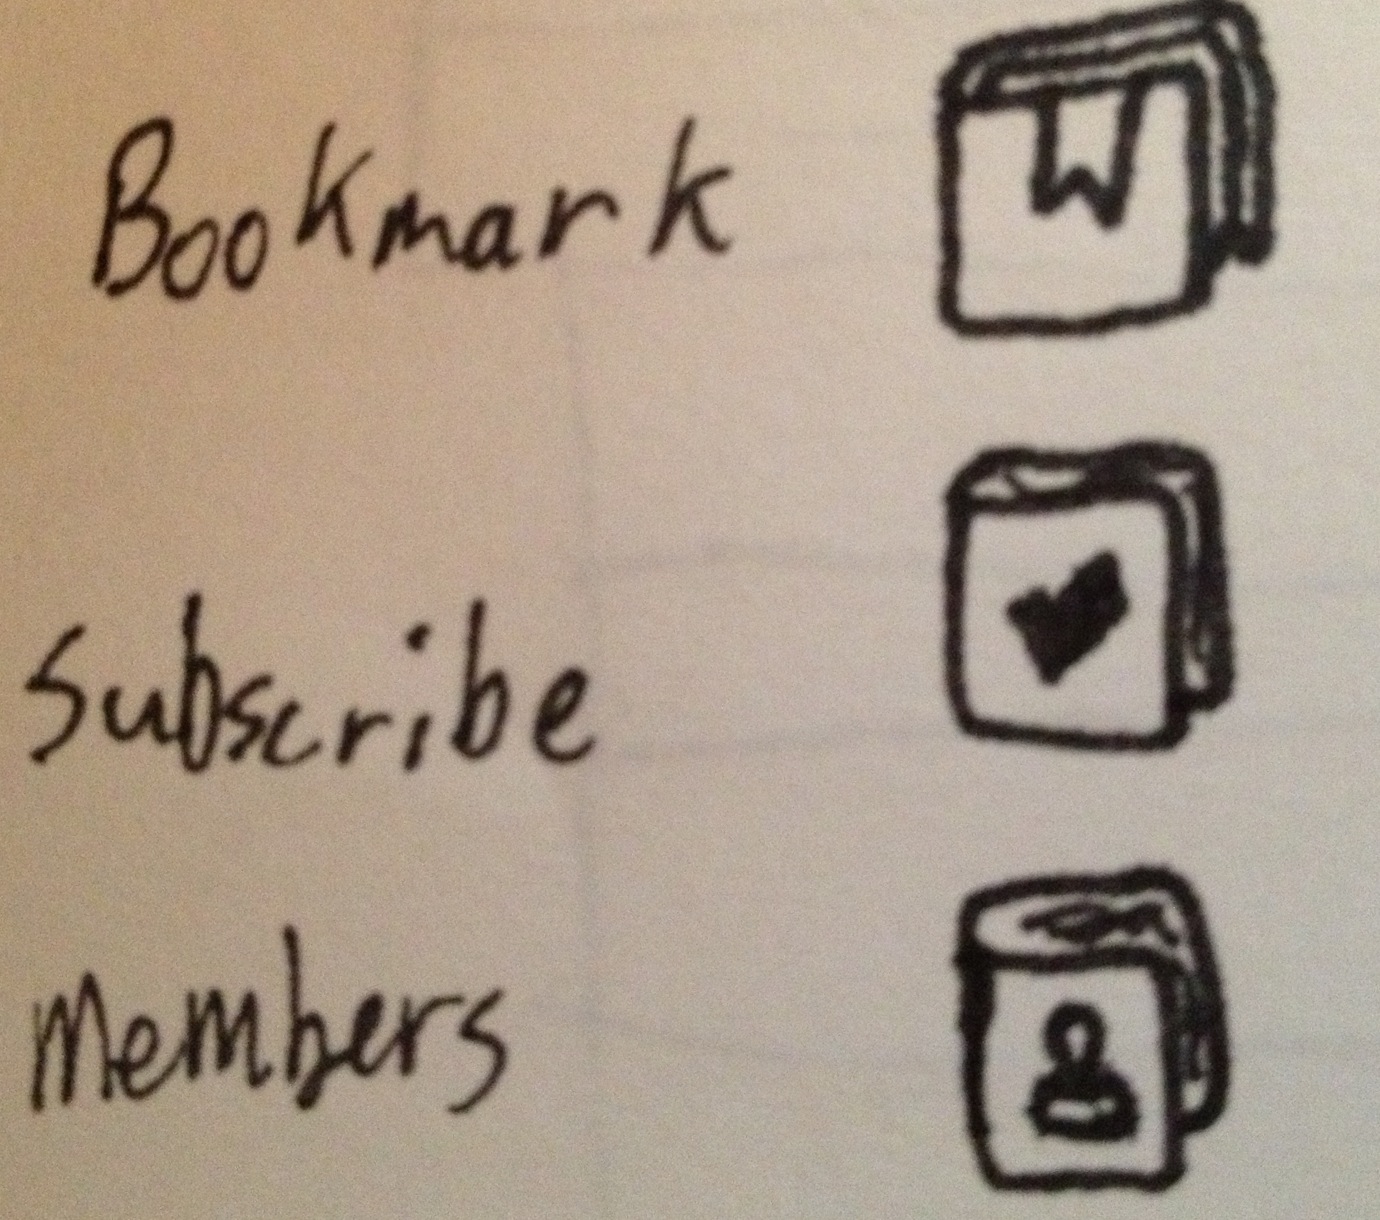 Bookmark
Subscribe
Members